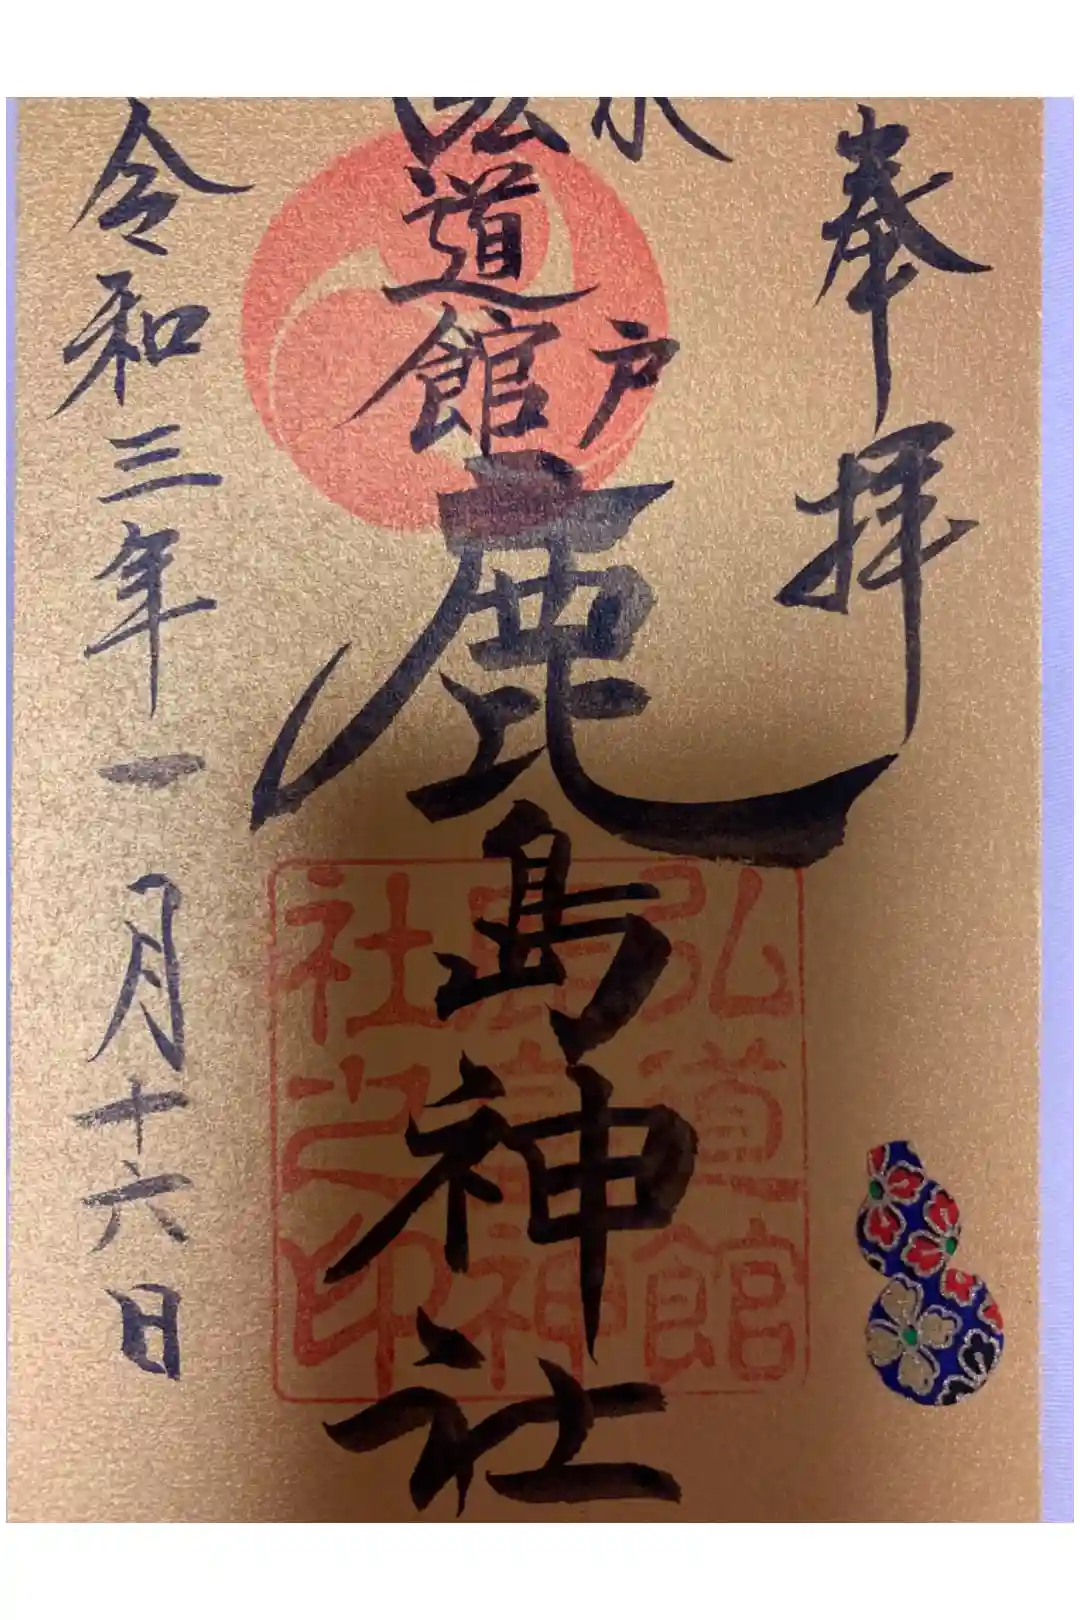 奉拝
水戸
弘道館
鹿島神社
令和三年一月十六日
弘道館
鹿島神
社之印